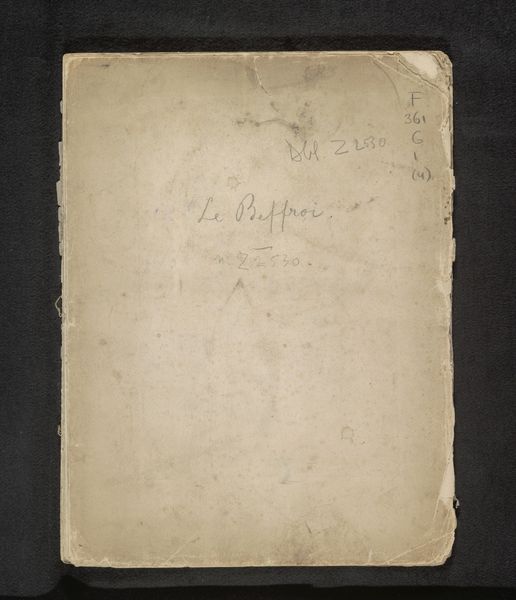 F
361
G
1
(4)
Dbl Z 2530
Le Beffroi.
Z 2530.